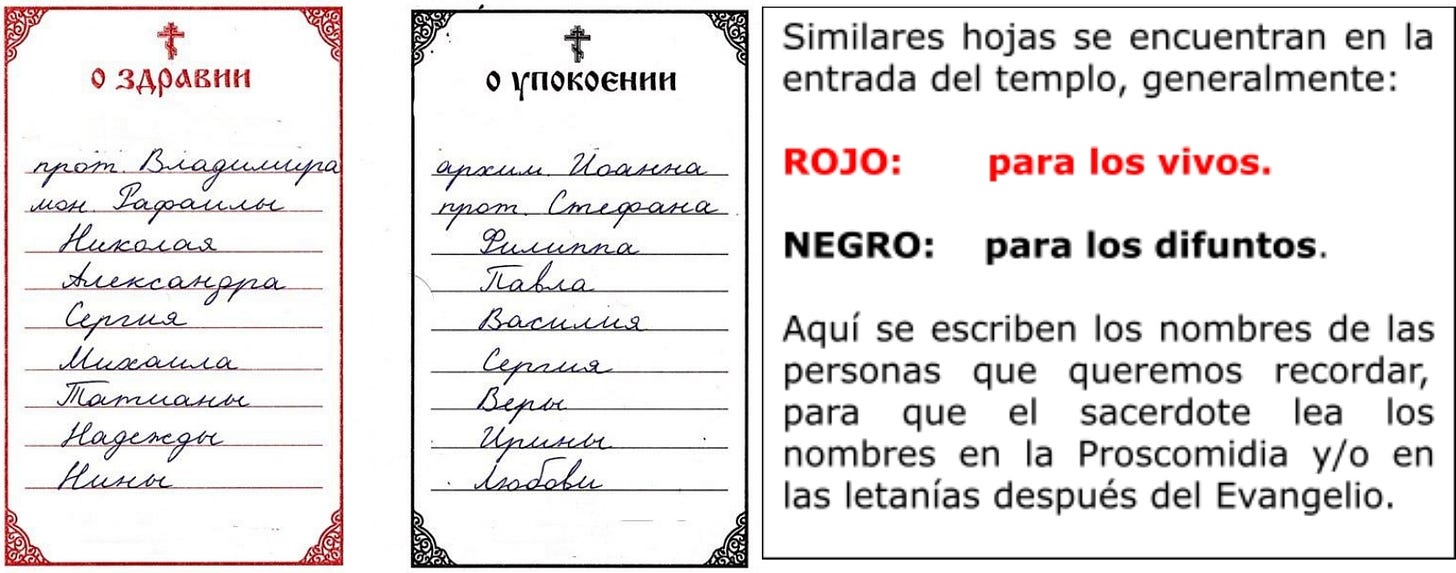 о здравии
прот. Владимира
мон. Рафаилы
Николая
Александра
Сергия
Михаила
Татианы
Надежды
Нины
о упокоении
архим. Иоанна
прот. Стефана
Филиппа
Павла
Василия
Сергия
Веры
Ирины
Любови
Similares hojas se encuentran en la
entrada del templo, generalmente:
ROJO: para los vivos.
NEGRO: para los difuntos.
Aquí se escriben los nombres de las
personas que queremos recordar,
para que el sacerdote lea los
nombres en la Proscomidia y/o en
las letanías después del Evangelio.